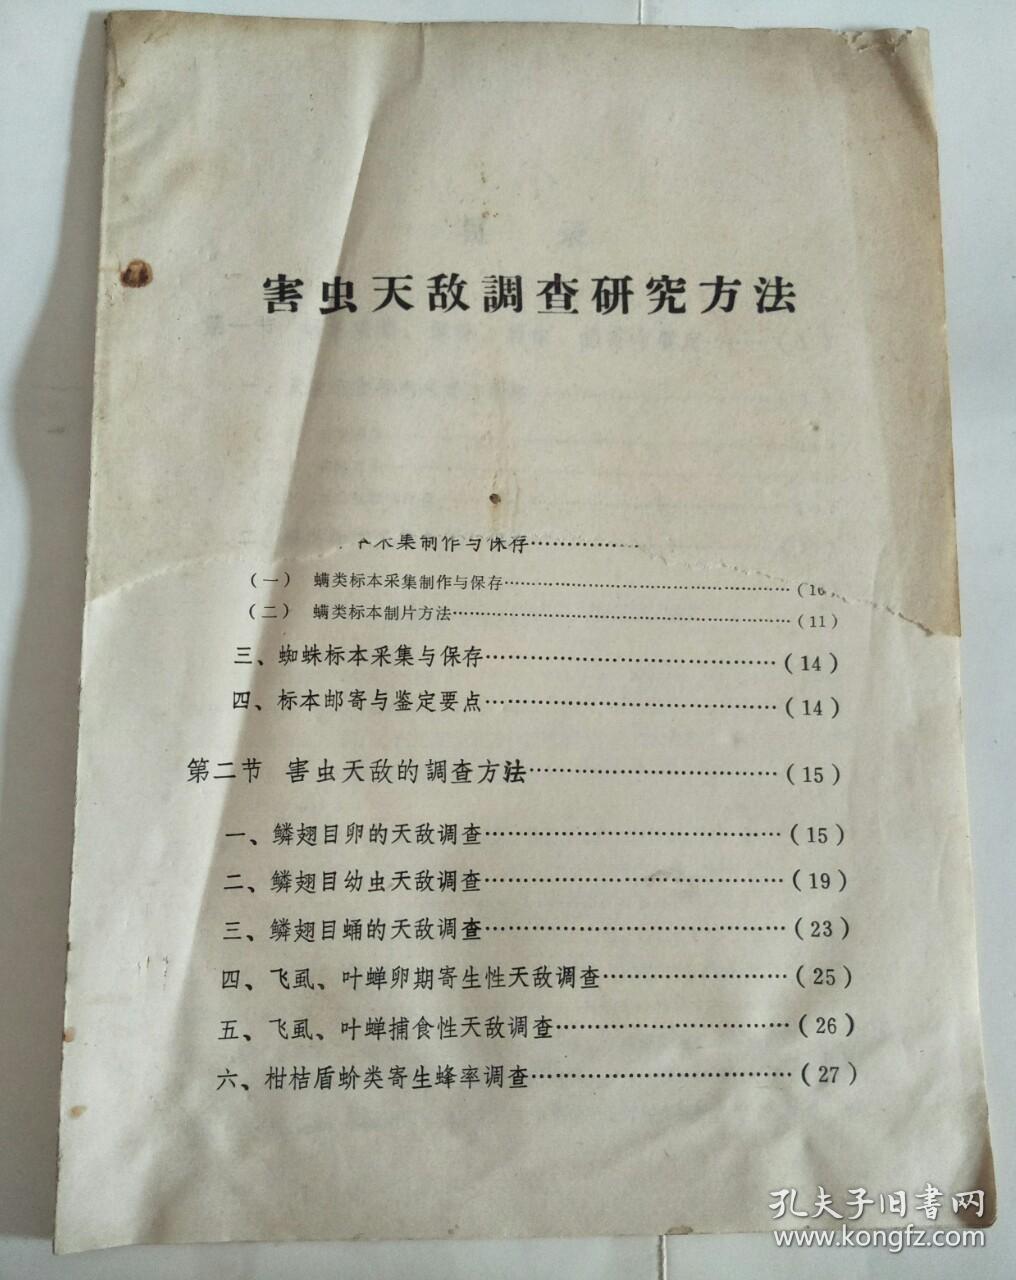 害虫天敌調查研究方法
采集制作与保存………………
(一) 螨类标本采集制作与保存………………………………………(10)
(二) 螨类标本制片方法………………………………………………(11)
三、蜘蛛标本采集与保存………………………………(14)
四、标本邮寄与鉴定要点………………………………(14)
第二节 害虫天敌的調查方法…………………………(15)
一、鳞翅目卵的天敌调查………………………………(15)
二、鳞翅目幼虫天敌调查………………………………(19)
三、鳞翅目蛹的天敌调查………………………………(23)
四、飞虱、叶蝉卵期寄生性天敌调查…………………(25)
五、飞虱、叶蝉捕食性天敌调查………………………(26)
六、柑桔盾蚧类寄生蜂率调查…………………………(27)
孔夫子旧书网
www.kongfz.com